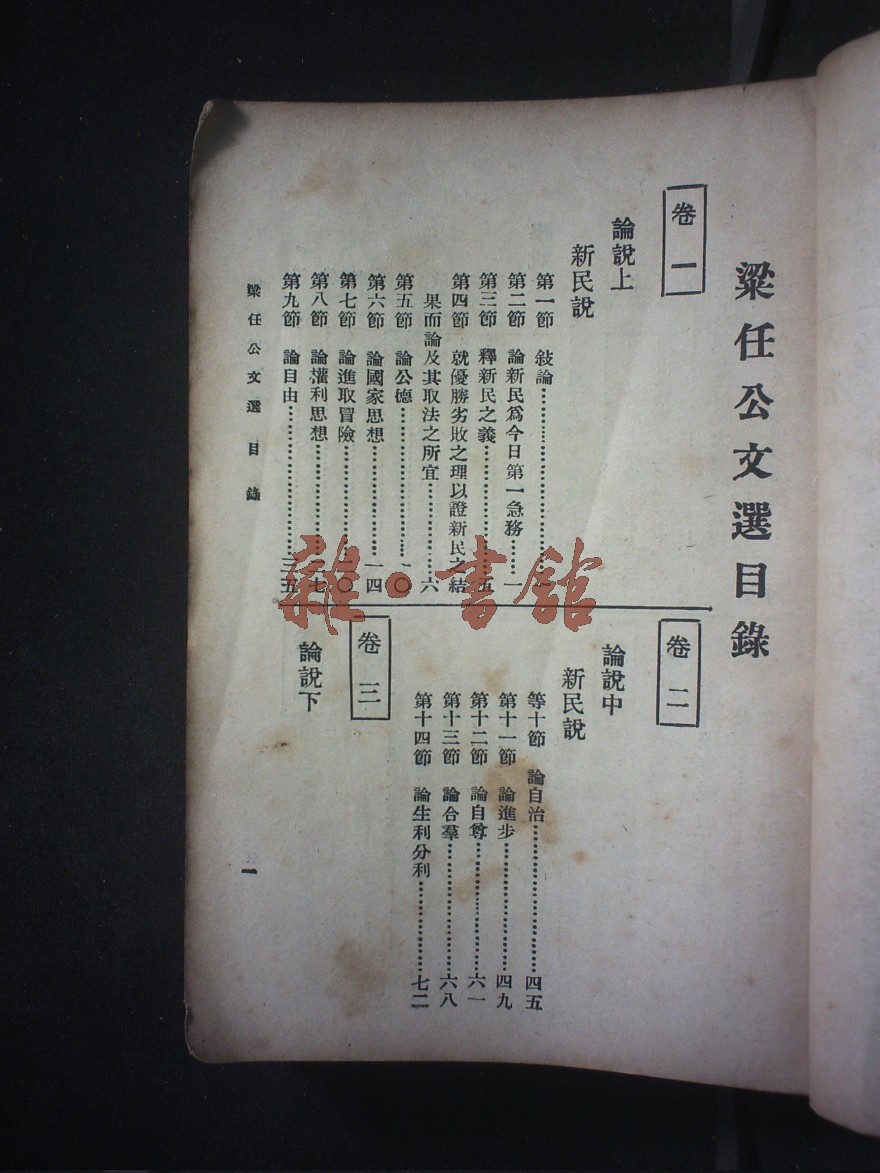 梁任公文選目錄
卷一
論說上
新民說
第一節　敍論…………
第二節　論新民爲今日第一急務…………一
第三節　釋新民之義…………五
第四節　就優勝劣敗之理以證新民之結
果而論及其取法之所宜…………六
第五節　論公德…………一〇
第六節　論國家思想…………一四
第七節　論進取冒險…………〇
第八節　論權利思想…………七
第九節　論自由…………三五
卷二
論說中
新民說
等十節　論自治…………四五
第十一節　論進步…………四九
第十二節　論自尊…………六一
第十三節　論合羣…………六八
第十四節　論生利分利…………七二
卷三
論說下
梁任公文選　目錄
一
雜·書館